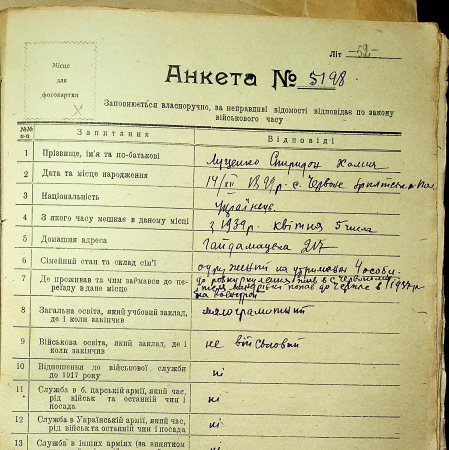 Літ -52-
Місце
для
фотокартки
Анкета № 5198
Заповнюється власноручно, за неправдиві відомості відповідає по закону
військового часу
№№ п-п. Запитання Відповіді
1 Прізвище, ім'я та по-батькові Луценко Спиридон Хомич
2 Дата та місце народження 14/XII р. с. Червоне
3 Національність Українець
4 З якого часу мешкає в даному місці з 1939 р. квітня 5 числа
5 Домашня адреса Гайдамацька
6 Сімейний стан та склад сім'ї одружений на утриманні 4 особи
7 Де проживав та чим займався до пе-
реїзду в дане місце до розкуркулення жив в с.
8 Загальна освіта, який учбовий заклад,
де і коли закінчив малограмотний
9 Військова освіта, який заклад, де і
коли закінчив не військовий
10 Відношення до військової служби
до 1917 року ні
11 Служба в б. царській армії, який час,
рід військ та останній чин і
посада ні
12 Служба в Українській армії, який час,
рід військ та останній чин і посада ні
13 Служба в інших арміях (за винятком